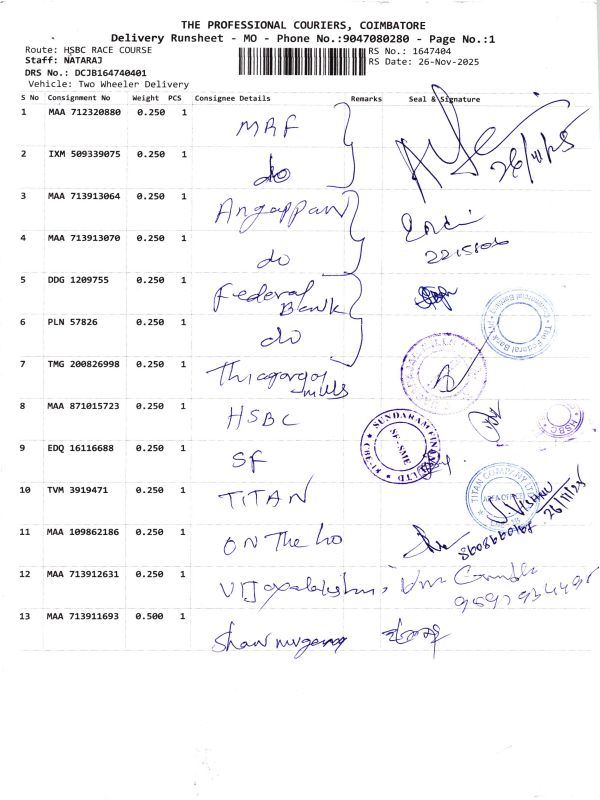 THE PROFESSIONAL COURIERS, COIMBATORE
Delivery Runsheet - MO - Phone No.:9047080280 - Page No.:1
Route: HSBC RACE COURSE RS No.: 1647404
Staff: NATARAJ RS Date: 26-Nov-2025
DRS No.: DCJB164740401
Vehicle: Two Wheeler Delivery
S No Consignment No Weight PCS Consignee Details Remarks Seal & Signature
1 MAA 712320880 0.250 1 MRF 26/11/25
2 IXM 509339075 0.250 1 do
3 MAA 713913064 0.250 1 Angappan
4 MAA 713913070 0.250 1 do 2215806
5 DDG 1209755 0.250 1 Federal Bank
6 PLN 57826 0.250 1 do
The Federal Bank Ltd
7 TMG 200826998 0.250 1 Thiagaraja mills
8 MAA 871015723 0.250 1 HSBC
HSBC
9 EDQ 16116688 0.250 1 SF
SUNDARAM FINANCE LTD
SF-SME
10 TVM 3919471 0.250 1 TITAN
TITAN COMPANY LTD
AREA OFFICE
26/11/25
11 MAA 109862186 0.250 1 ON The Go
12 MAA 713912631 0.250 1
13 MAA 713911693 0.500 1